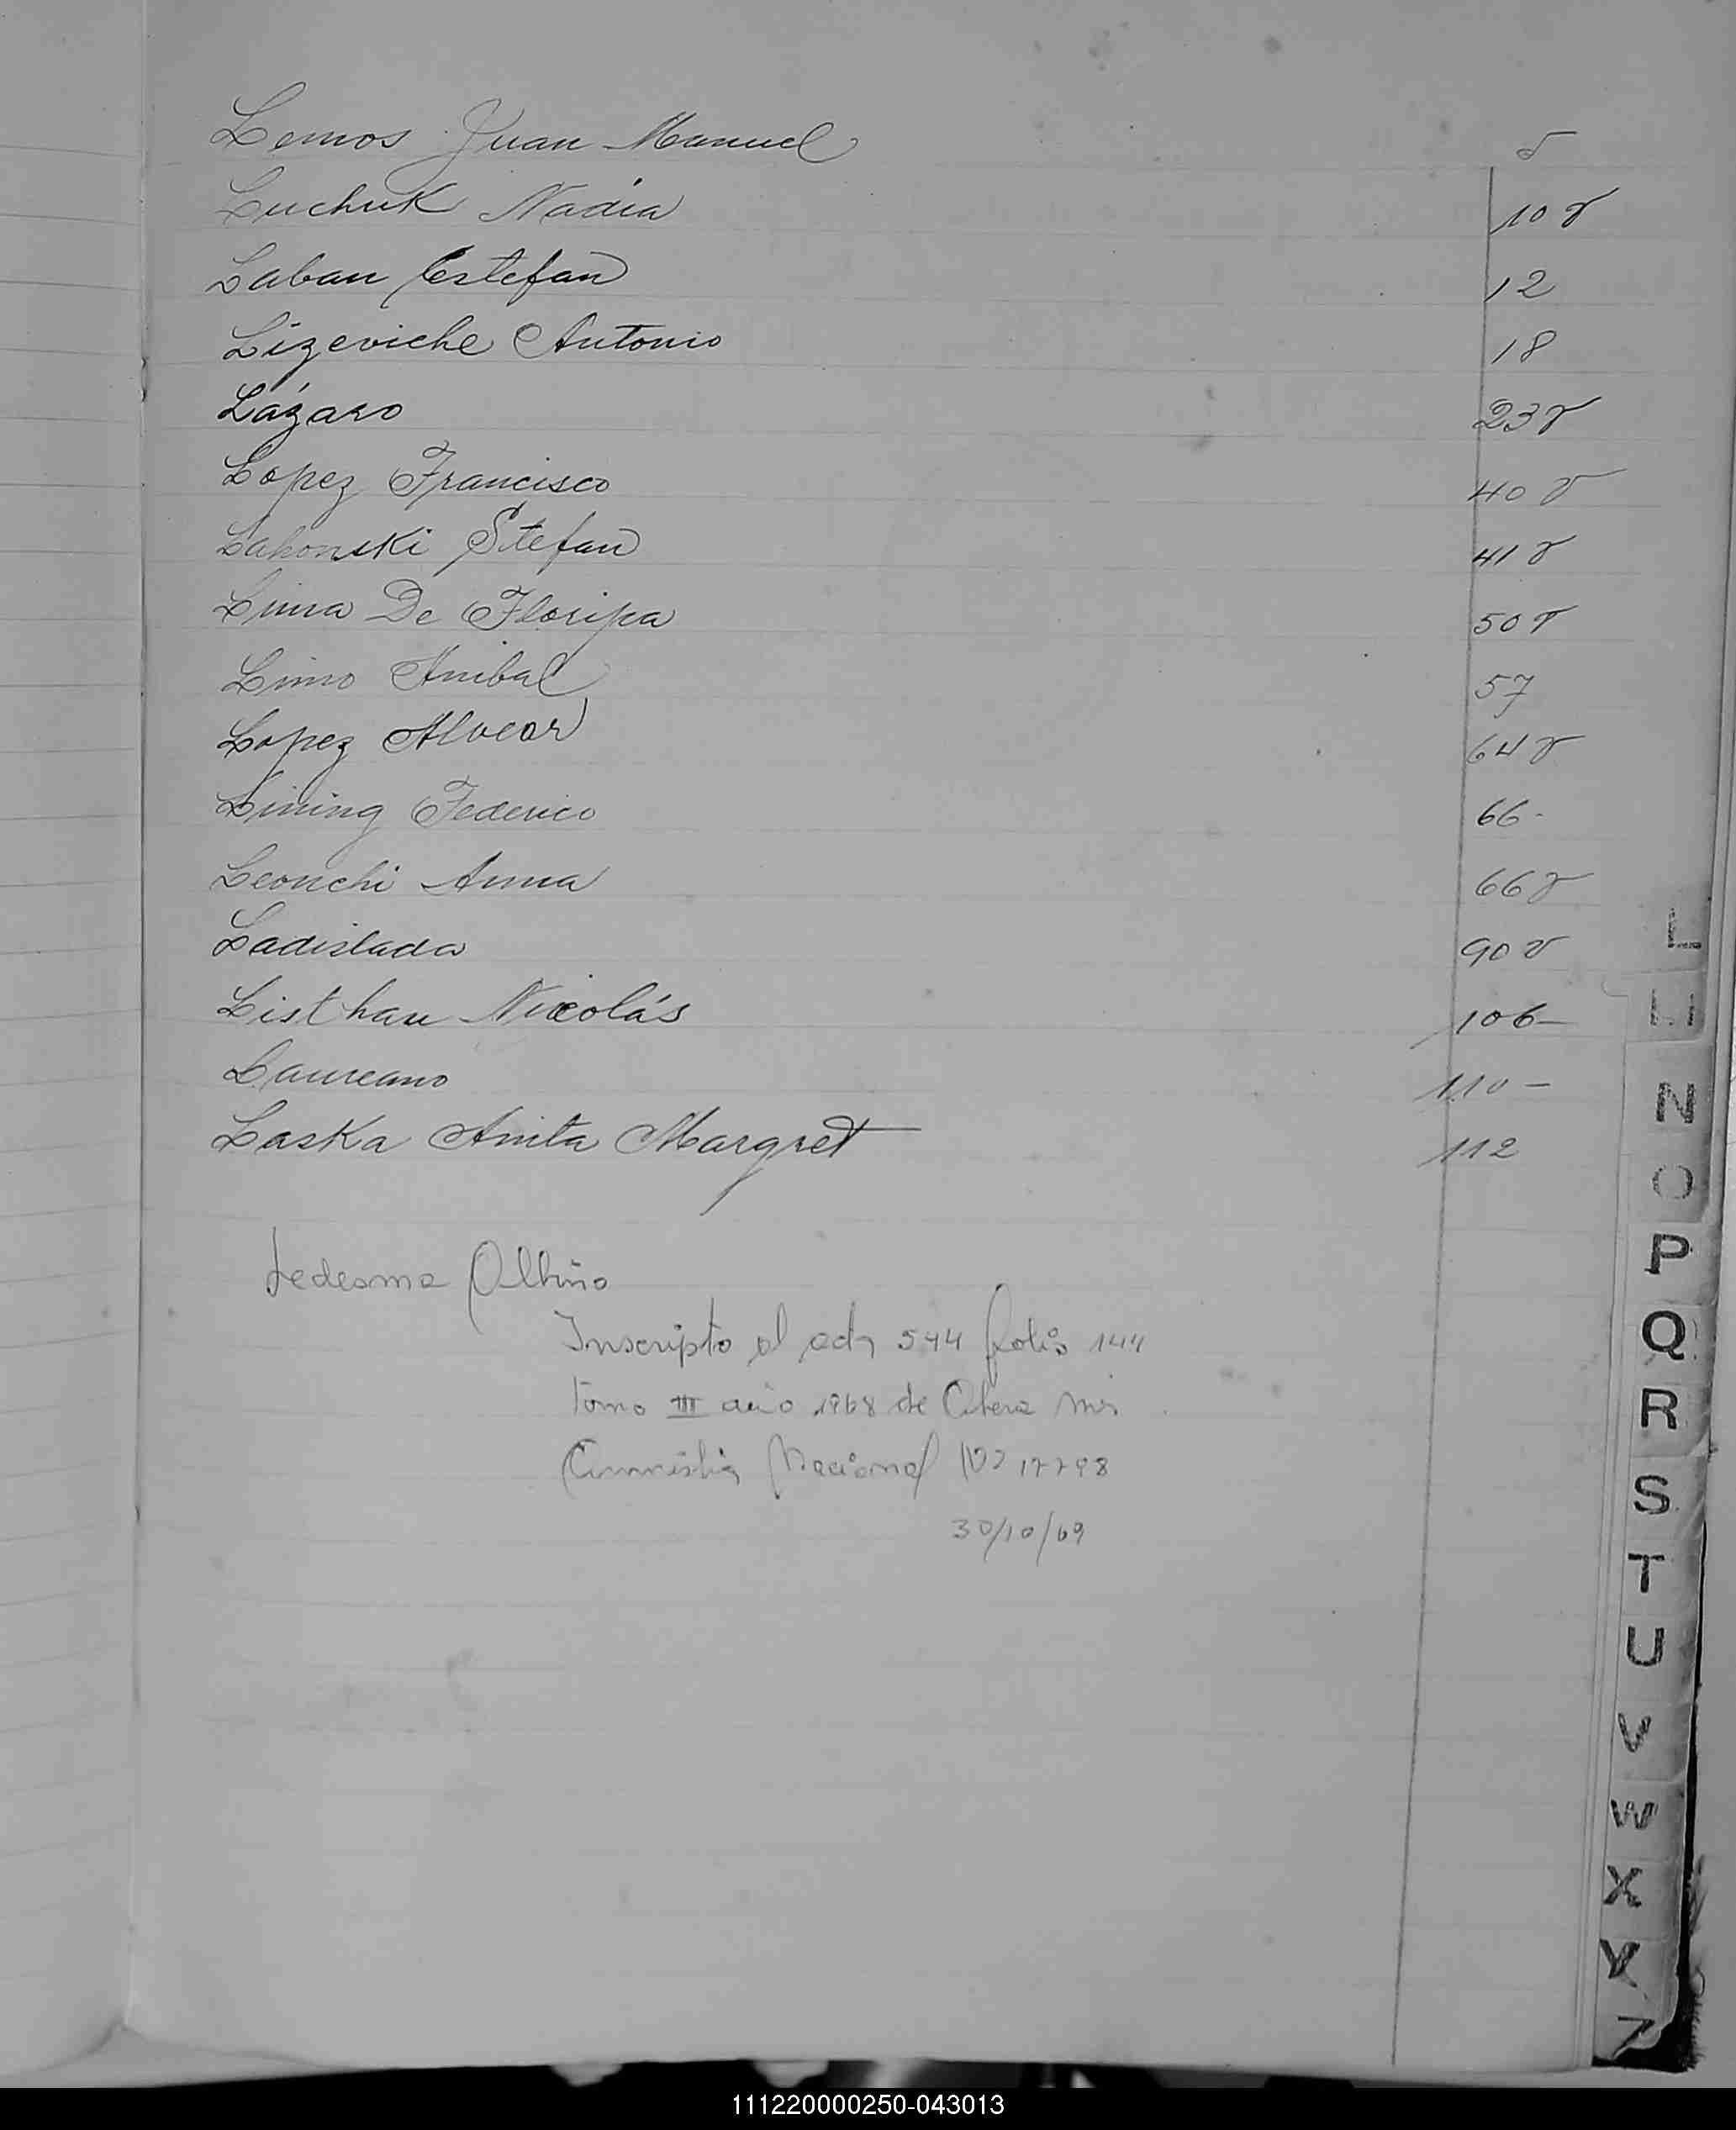 Lemos Juan Manuel 5
Luchuk Nadia 10 v
Laban Estefan 12
Lizeviche Antonio 18
Lázaro 23 v
Lopez Francisco 40 v
Lahonski Stefan 41 v
Lima De Floripa 50 v
Limo Anibal 57
Lopez Alvear 64 v
Lining Federico 66 -
Leonchi Anna 66 v
Ladislada 90 v
Listhau Nicolás 106 -
Laureano 110 -
Laska Anita Margret 112
Ledesma Albino
Inscripto al acta 544 folio 144
tomo III año 1968 de Obera Mis
Amnistia Nacional 17798
30/10/69
L
M
N
O
P
Q
R
S
T
U
V
W
X
Y
Z
111220000250-043013